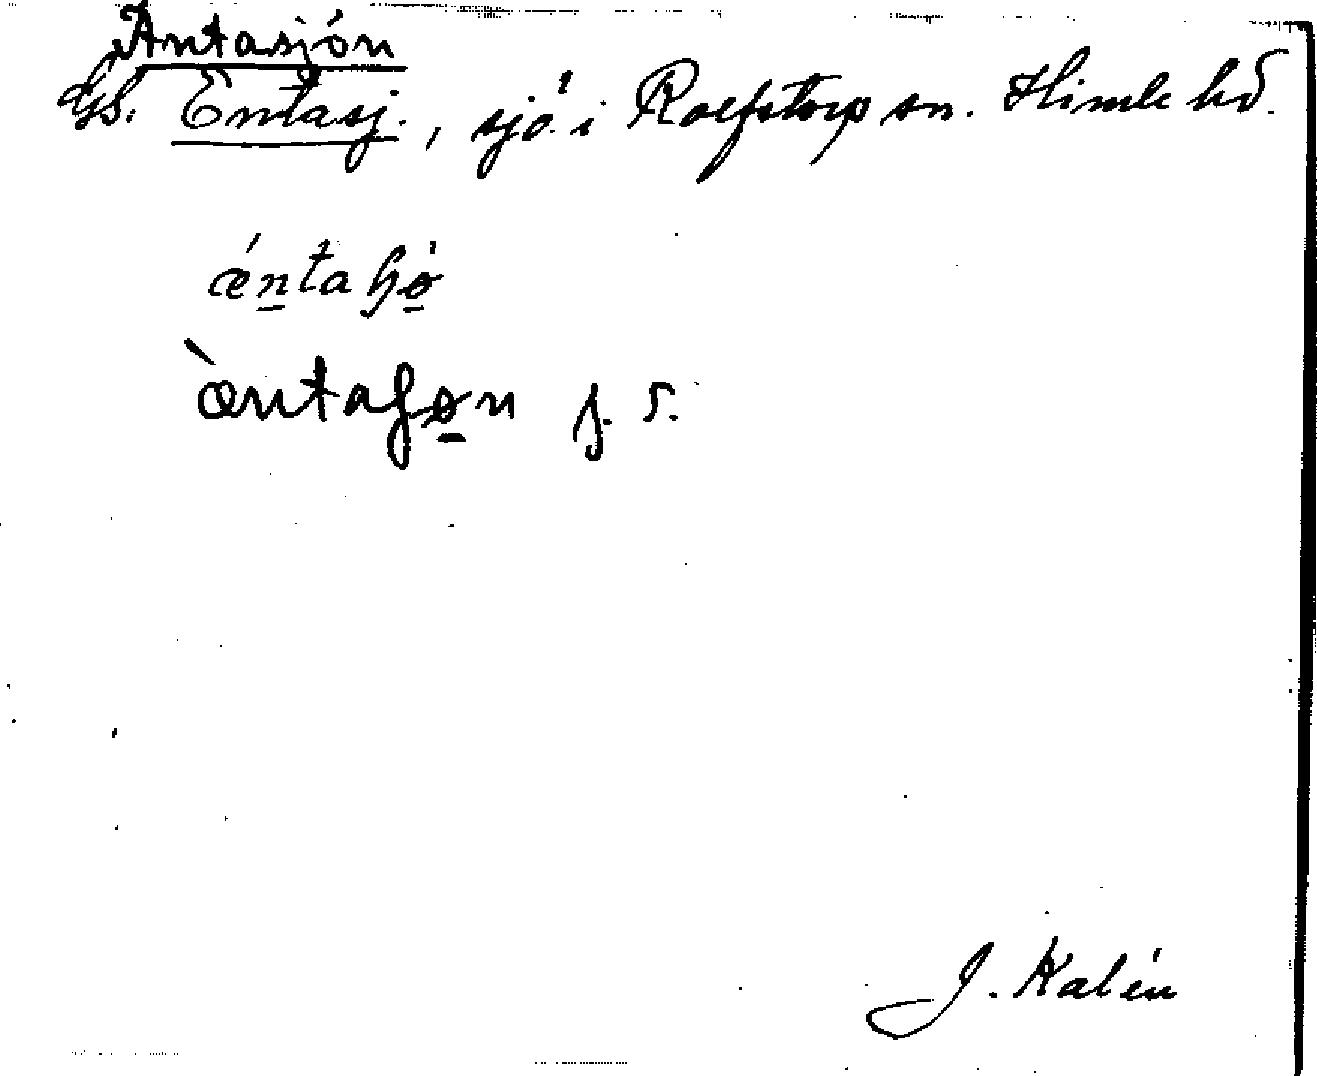 Antasjön
Gs. Entasj., sjö i Rolfstorp sn. Himle hd.
ǽntaʃö
æ̀ntaʃøn f. s.
J. Kalén